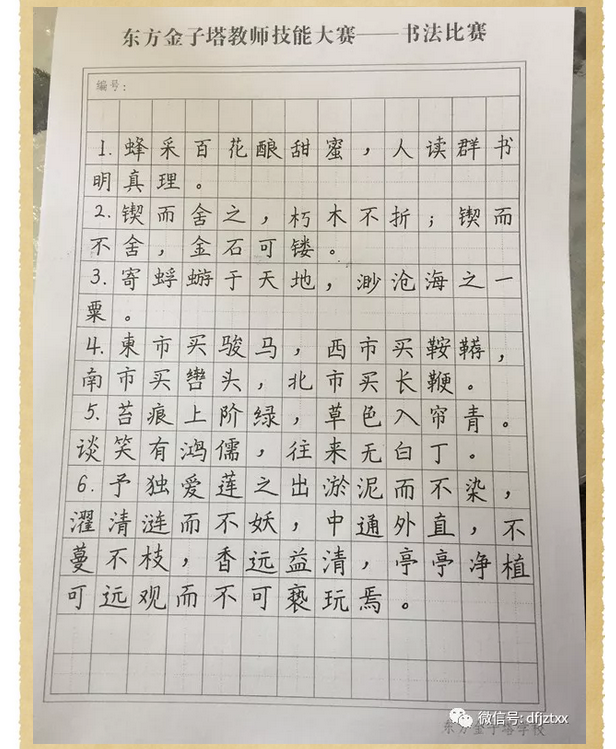 东方金子塔教师技能大赛——书法比赛
编号：
1.蜂采百花酿甜蜜，人读群书
明真理。
2.锲而舍之，朽木不折；锲而
不舍，金石可镂。
3.寄蜉蝣于天地，渺沧海之一
粟。
4.東市买骏马，西市买鞍鞯，
南市买辔头，北市买长鞭。
5.苔痕上阶绿，草色入帘青。
谈笑有鸿儒，往来无白丁。
6.予独爱莲之出淤泥而不染，
濯清涟而不妖，中通外直，不
蔓不枝，香远益清，亭亭净植
可远观而不可亵玩焉。
东方金子塔学校
微信号: dfjztxx